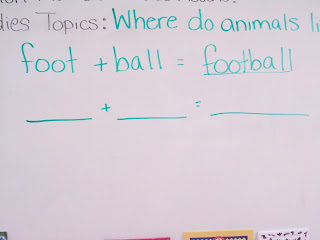 Topics: Where do animals
foot + ball = football
____ + ____ = ______